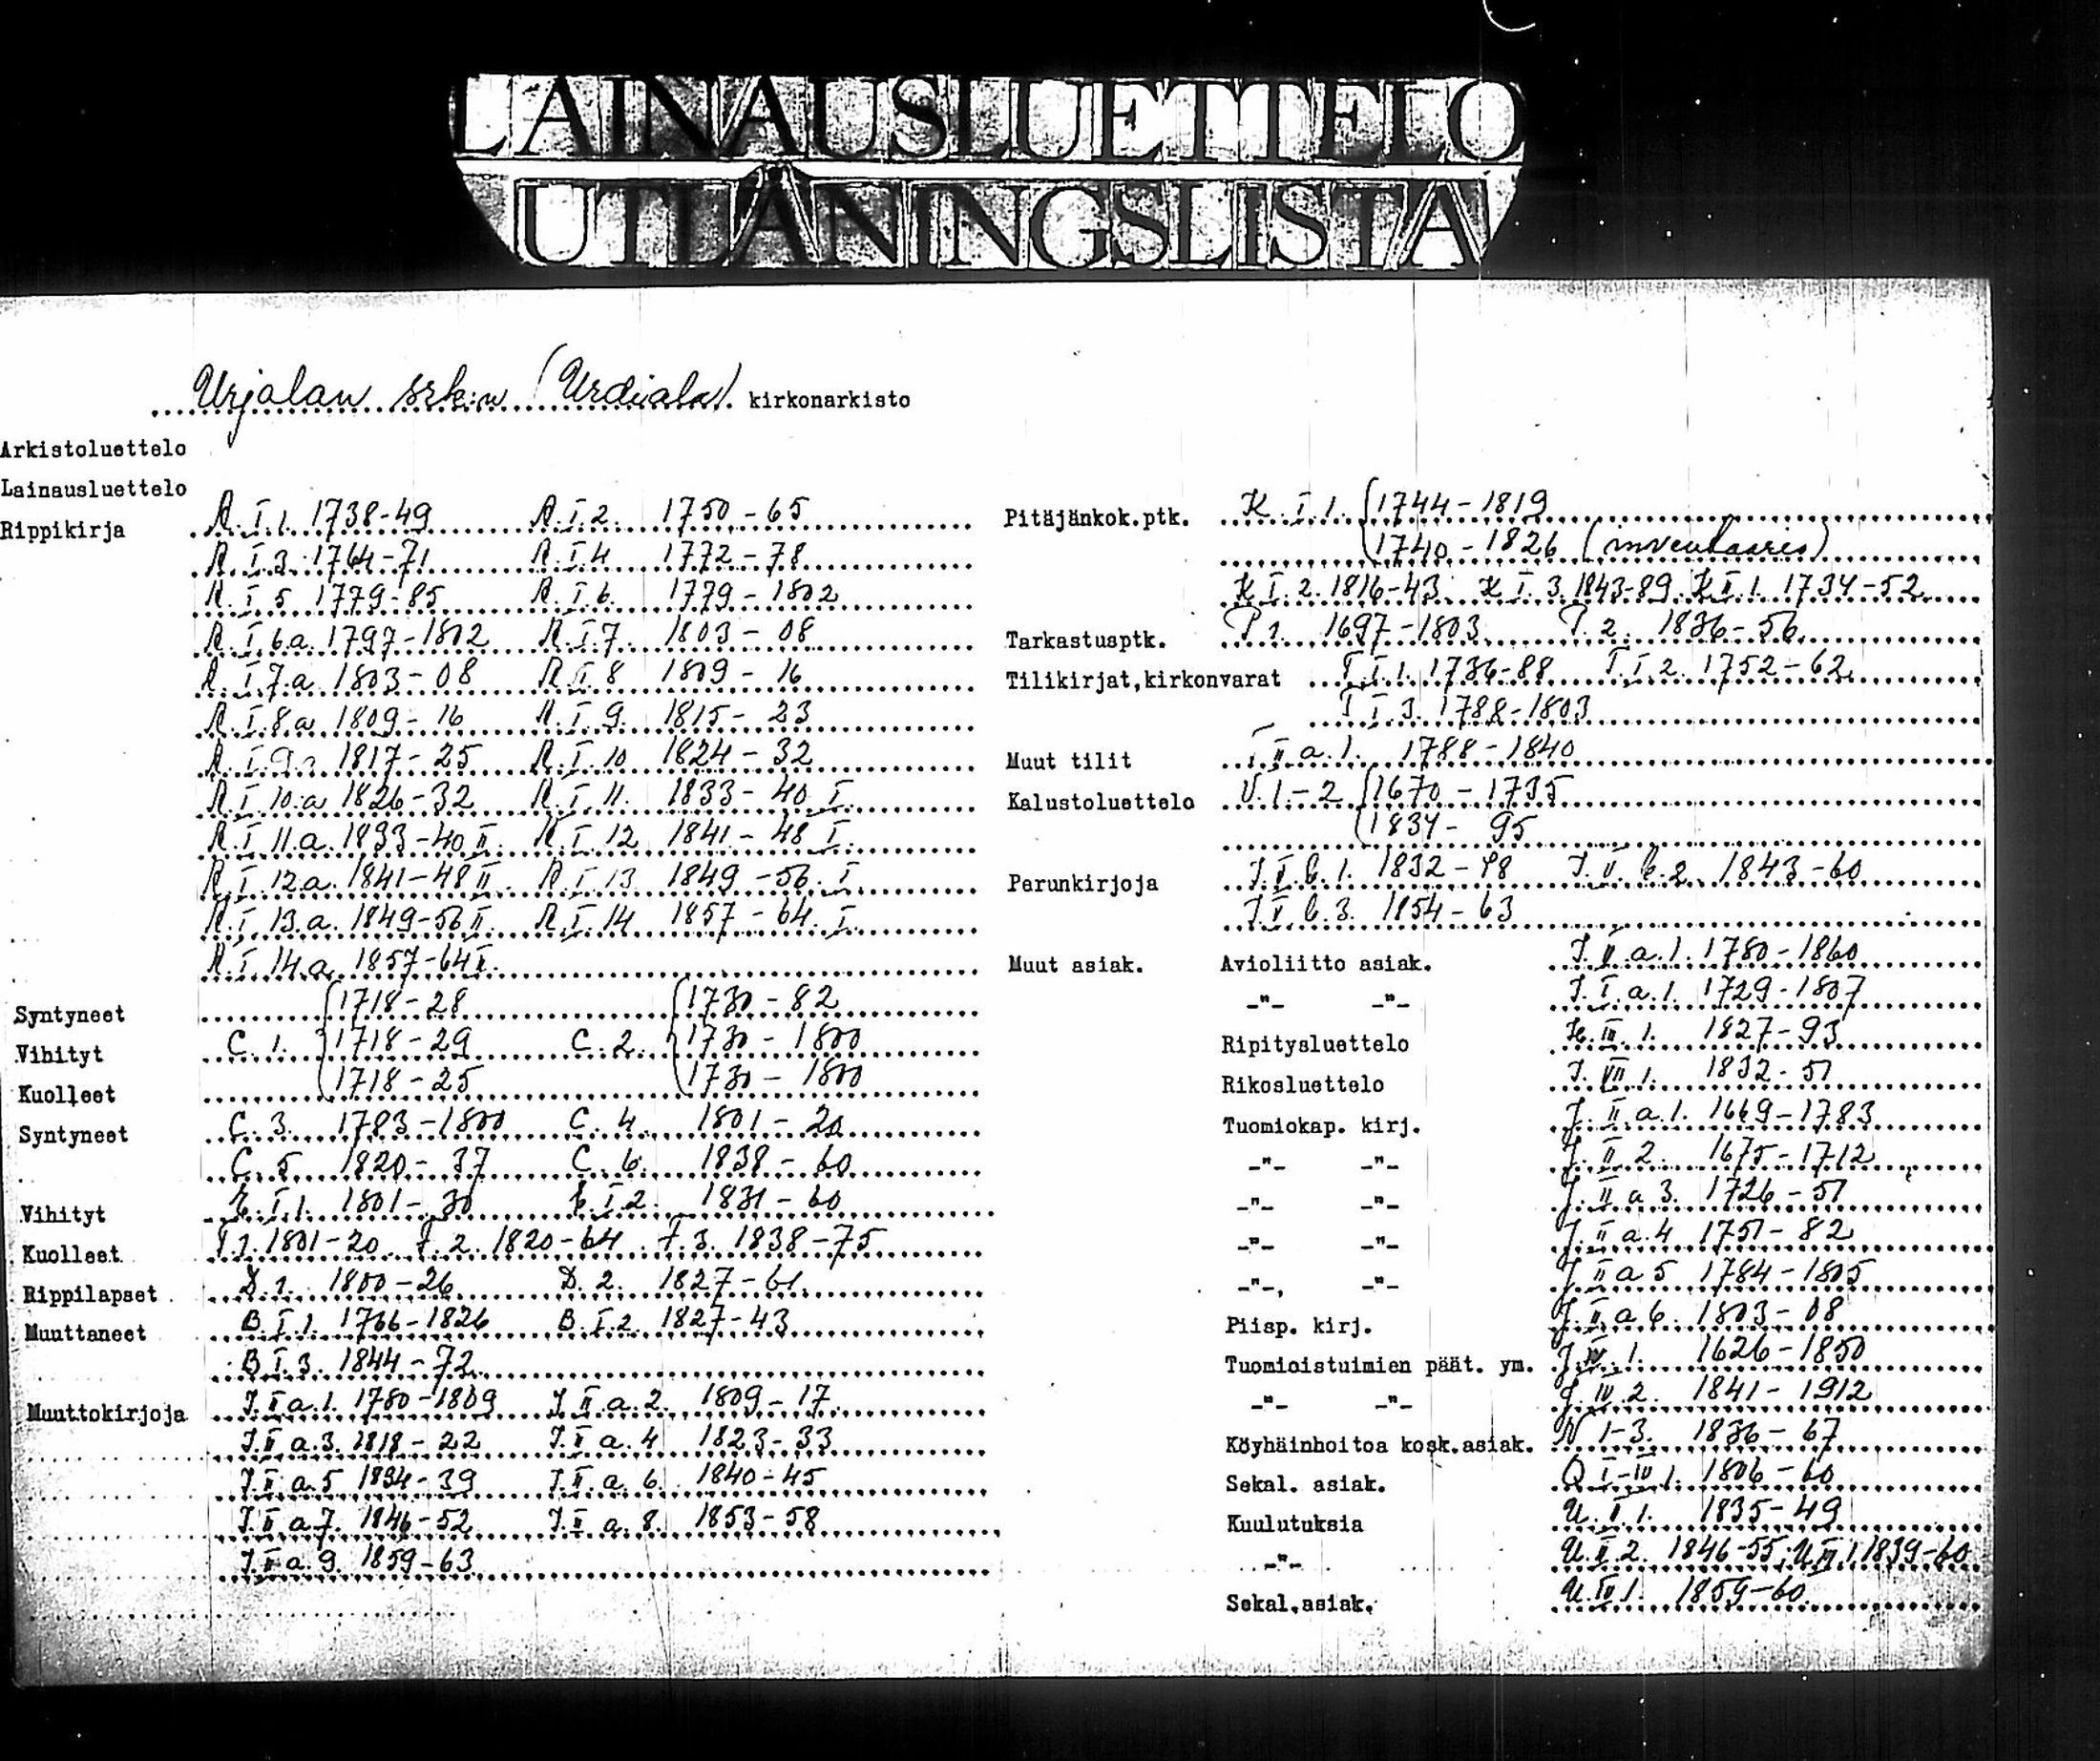 LAINAUSLUETTELO
UTLÅNINGSLISTA
Urjalan srk:n (Urdiala) kirkonarkisto
Arkistoluettelo
Lainausluettelo
Rippikirja A.I.1. 1738-49 A.I.2. 1750-65
A.I.3. 1764-71 A.I.4 1772-78
A.I.5 1779-85 A.I.6. 1779-1802
A.I.6a. 1797-1802 A.I.7. 1803-08
A.I.7.a 1803-08 A.I.8 1809-16
A.I.8a 1809-16 A.I.9. 1815-23
A.I.9a 1817-25 A.I.10 1824-32
A.I.10.a 1826-32 A.I.11. 1833-40 I.
A.I.11.a. 1833-40 II. A.I.12 1841-48 I.
A.I.12a. 1841-48 II. A.I.13 1849-56. I.
A.I.13.a. 1849-56 II. A.I.14 1857-64. I.
A.I.14.a. 1857-64 II.
Syntyneet 1718-28 1730-82
Vihityt C.1. 1718-29 C.2. 1730-1800
Kuolleet 1718-25 1730-1800
Syntyneet C.3. 1783-1800 C.4. 1801-20
C.5 1820-37 C.6. 1838-60
Vihityt E.I.1. 1801-30 E.I.2. 1831-60
Kuolleet F.1. 1801-20 F.2. 1820-64 F.3. 1838-75
Rippilapset D.1. 1800-26 D.2. 1827-61.
Muuttaneet B.I.1. 1766-1826 B.I.2. 1827-43
B I.3. 1844-72
Muuttokirjoja J.II a.1. 1780-1809 J II.a.2. 1809-17
J.II a.3. 1818-22 J.II a.4. 1823-33
J.II a.5 1834-39 J.II.a.6. 1840-45
J.II a 7. 1846-52 J.II a. 8. 1853-58
J II a. 9. 1859-63
Pitäjänkok.ptk. K.I.1. 1744-1819
1740-1826 (inventaario)
K I.2. 1816-43. K I.3. 1843-89. K II.1. 1734-52
Tarkastusptk. P 1. 1697-1803 P.2. 1836-56
Tilikirjat,kirkonvarat T.I.1. 1736-88 T.I.2. 1752-62
T I.3. 1788-1803
Muut tilit II a.1. 1788-1840
Kalustoluettelo U.1-2 1670-1735
1834-95
Perunkirjoja J.V.b.1. 1832-48 J.V.b.2. 1843-60
J.V b.3. 1854-63
Muut asiak. Avioliitto asiak. J.V.a.1. 1780-1860
-"- -"- J.I.a.1. 1729-1807
Ripitysluettelo III.1. 1827-93
Rikosluettelo J.VII 1. 1832-51
Tuomiokap. kirj. J.II a.1. 1669-1783
-"- -"- J.II 2. 1675-1712
-"- -"- J.II a 3. 1726-51
-"- -"- J.II a.4 1751-82
-"- -"- J II a 5 1784-1805
Piisp. kirj. J.II.a 6. 1803-08
Tuomioistuimien päät. ym. J.IV.1. 1626-1850
-"- -"- J.IV.2. 1841-1912
Köyhäinhoitoa kosk.asiak. N 1-3. 1836-67
Sekal. asiak. Q I-IV 1. 1806-60
Kuulutuksia U.I.1. 1835-49
-"- U.II.2. 1846-55; U III.1. 1839-60
Sekal.asiak. U.IV.1. 1859-60